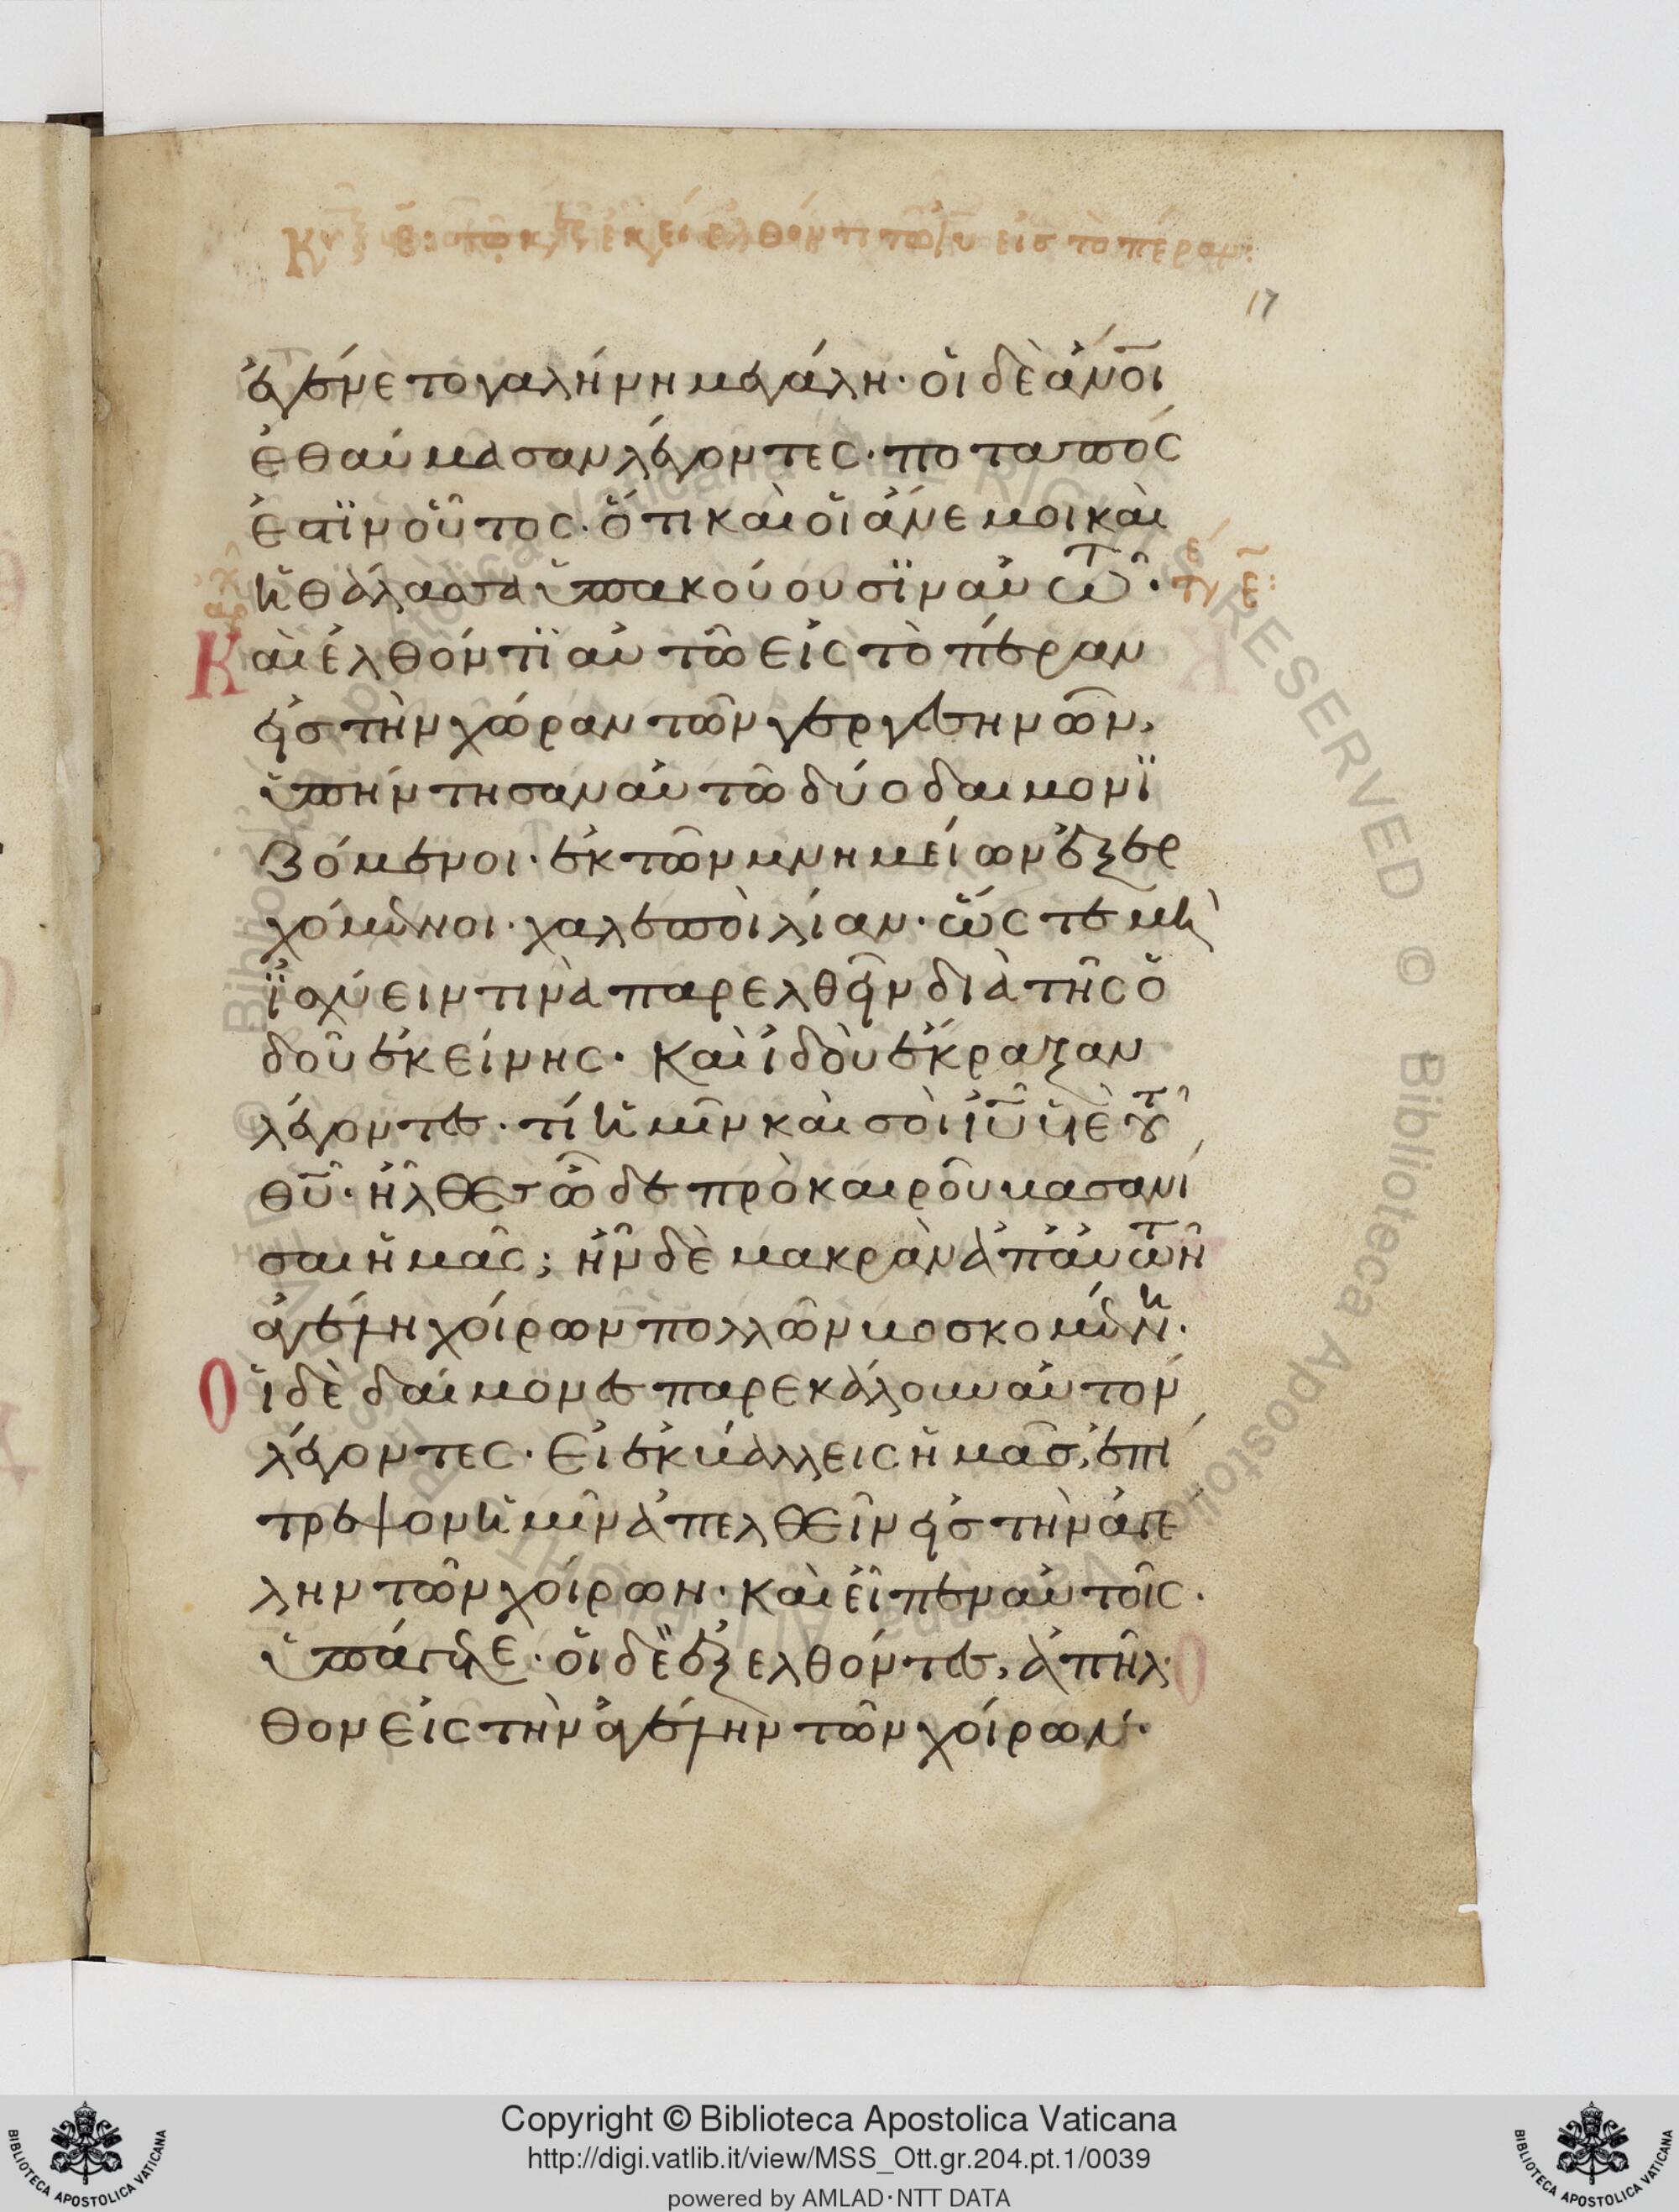 Κυ ε: τῶ κ ἐκεί ἐλθόντι τῶ ἰυ εἰσ τὸ πέραν:
17
ἐγένετο γαλήνη μεγάλη· οἱ δὲ ἀνοι
ἐθαύμασαν λέγοντες· ποταπός
ἐστϊν οὗτος· ὅτι καὶ οἱ ἄνεμοι καὶ
ἡ θάλασσα ὑπακούουσϊν αὐτῶ· τε ε:
Καὶ ἐλθόντϊ αὐτῶ εἰς τὸ πέραν
εἰσ τὴν χώραν τῶν γεργεσηνῶν,
ὑπήντησαν αὐτῶ δύο δαιμονϊ
ζόμενοι· ἐκ τῶν μνημείων ἐξερ
χόμενοι· χαλεποὶ λίαν· ὥς τε μὴ
ἰσχύειν τινὰ παρελθεῖν διὰ τῆς ὁ
δοῦ ἐκείνης· Καὶ ἰδοὺ ἔκραξαν
λέγοντες· τί ἡμῖν καὶ σοὶ ἰῦ υἱὲ τοῦ
θῦ· ἦλθες ὧδε πρὸ καιροῦ βασανί
σαι ἡμᾶς; ἦν δὲ μακρὰν ἀπ' αὐτῶν
ἀγέλη χοίρων πολλῶν βοσκομένη·
Οἱ δὲ δαίμονες παρεκάλουν αὐτὸν
λέγοντες· Εἰ ἐκβάλλεις ἡμᾶσ, ἐπί
τρεψον ἡμῖν ἀπελθεῖν εἰσ τὴν ἀγέ
λην τῶν χοίρων· Καὶ εἶπεν αὐτοῖς·
ὑπάγετε· οἱ δὲ ἐξελθόντες, ἀπῆλ
θον εἰς τὴν ἀγέλην τῶν χοίρων·
Copyright © Biblioteca Apostolica Vaticana
http://digi.vatlib.it/view/MSS_Ott.gr.204.pt.1/0039
powered by AMLAD·NTT DATA
BIBLIOTECA APOSTOLICA VATICANA
BIBLIOTECA APOSTOLICA VATICANA